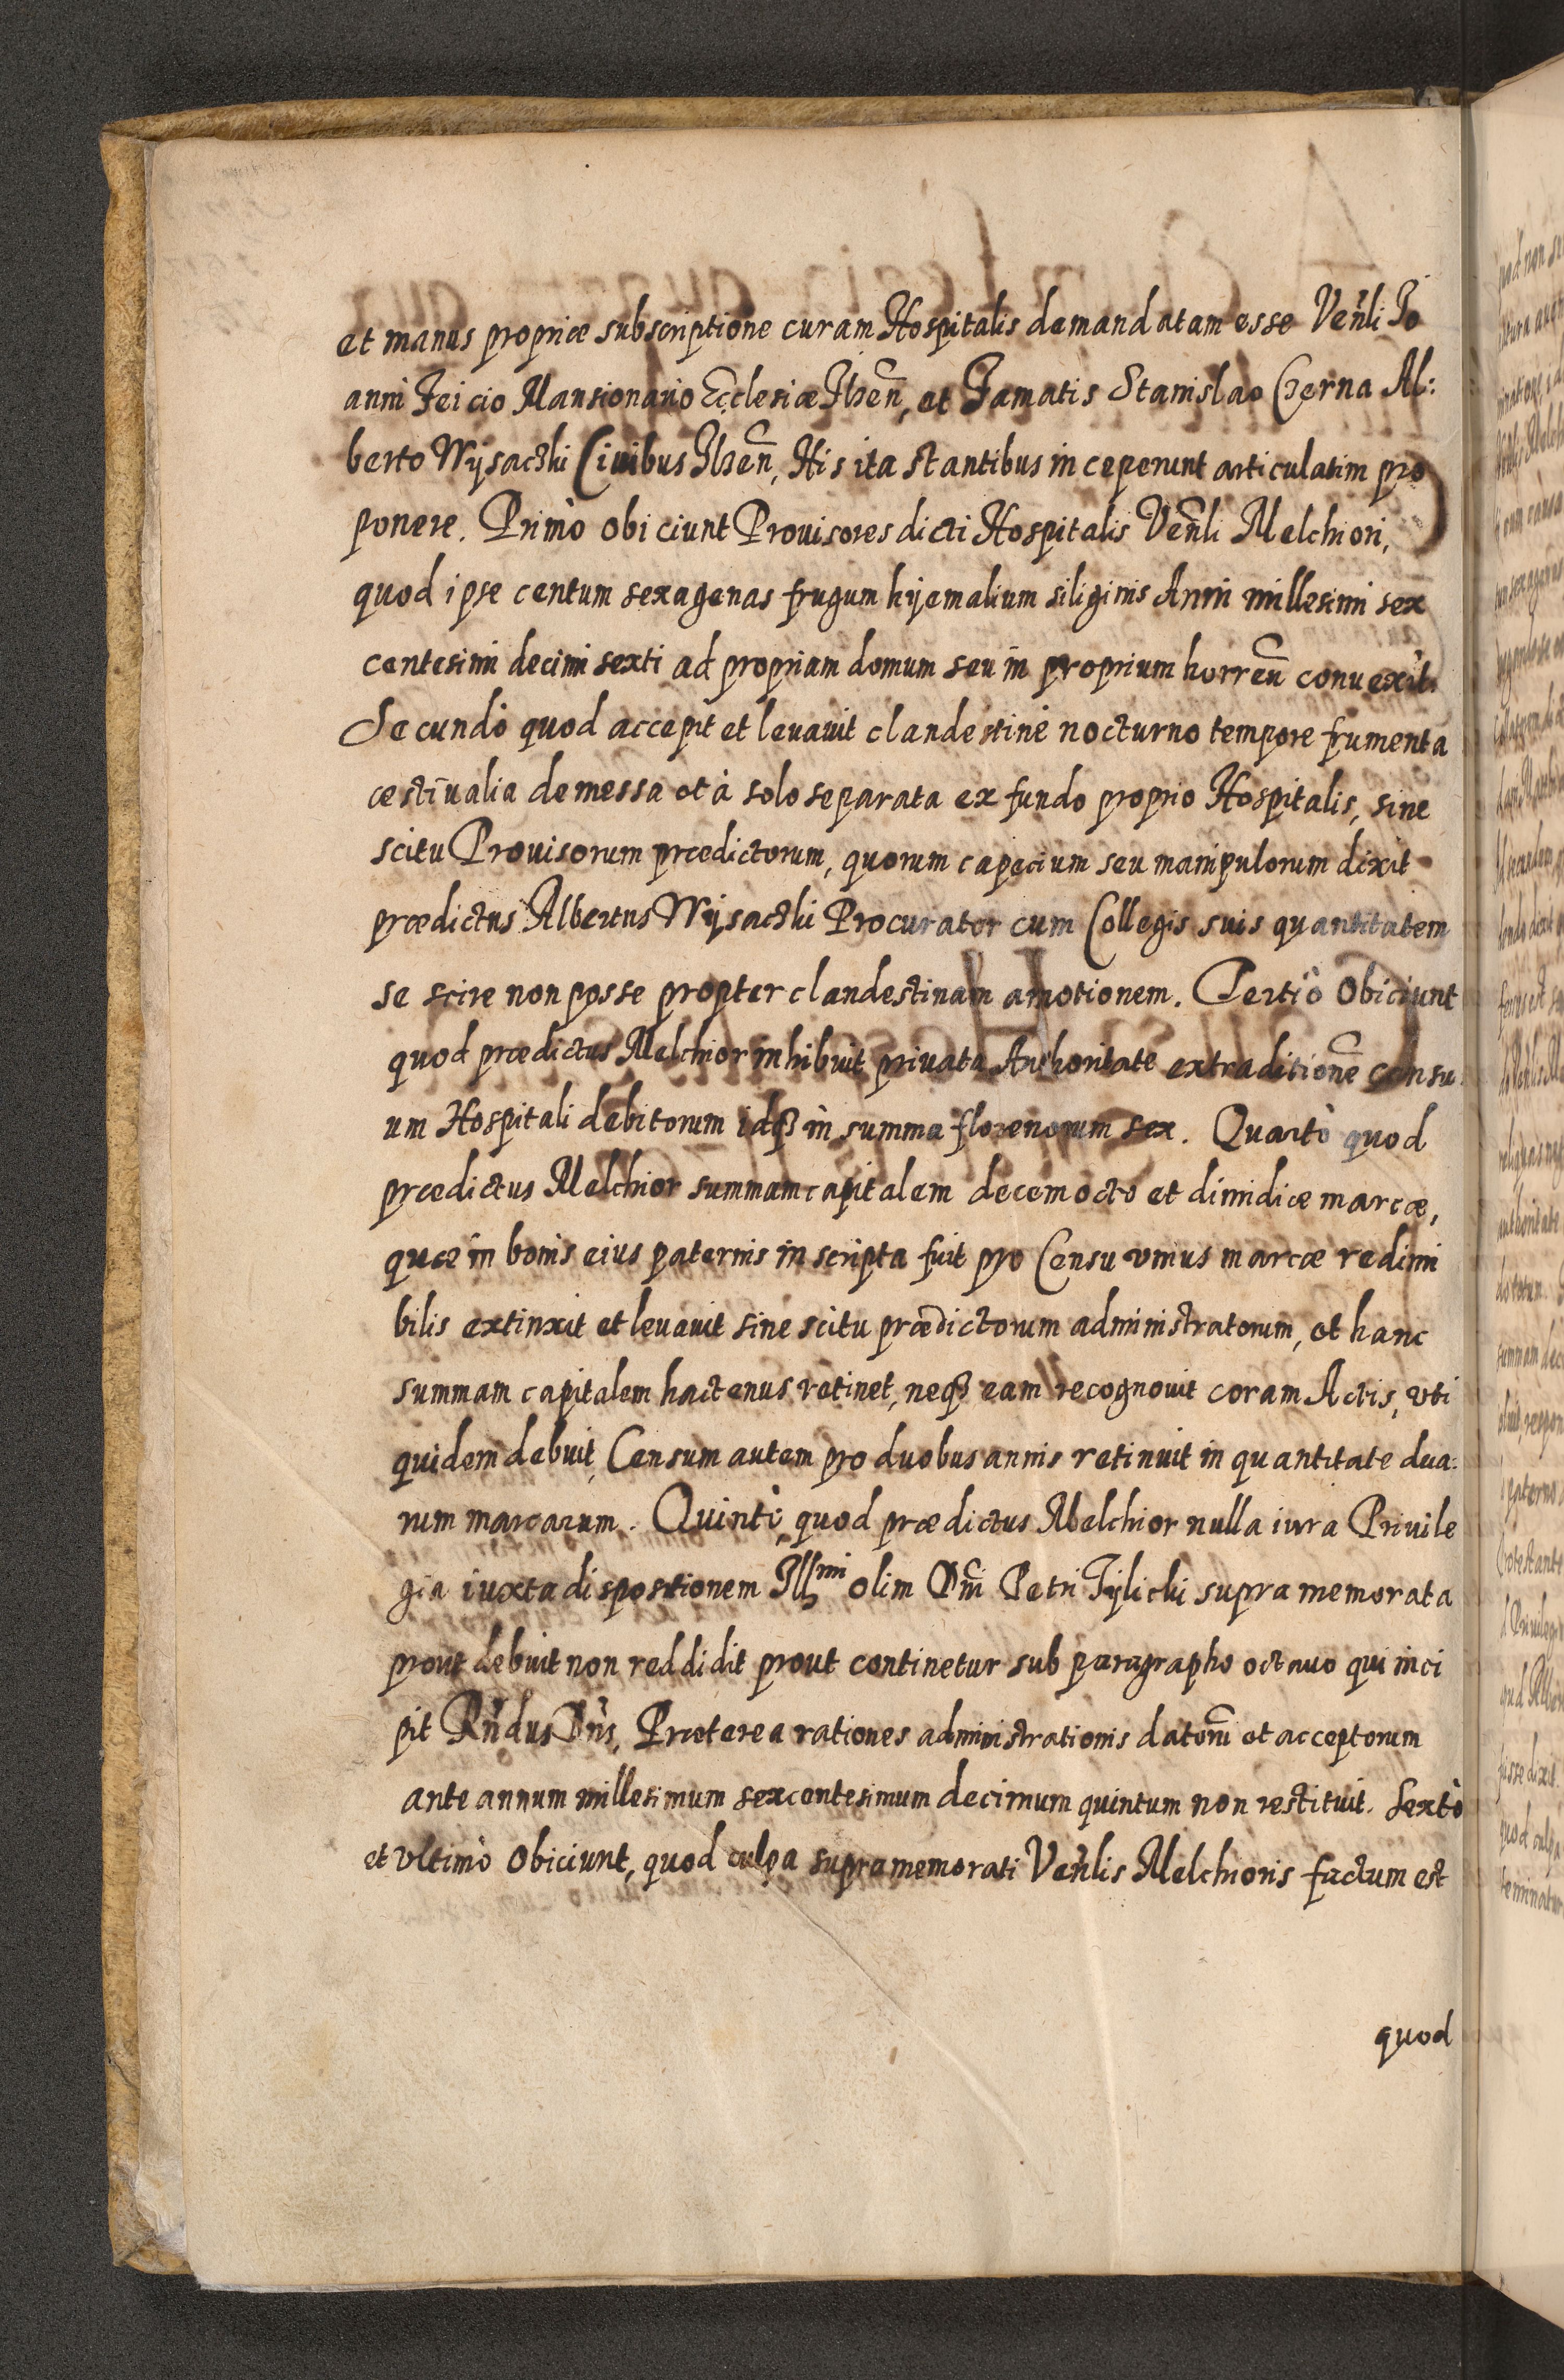 et manus propriæ subscriptione curam Hospitalis demandatam esse Ven̄li Jo
anni Feicio Mansionario Ecclesiæ Ilzen̄, et Famatis Stanislao Czerna Al:
berto Wÿsaczki Ciuibus Ilzen̄, His ita stantibus inceperunt articulatim pro
ponere. Primò obiciunt Prouisores dicti Hospitalis Ven̄li Melchiori,
quod ipse centum sexagenas frugum hÿemalium siliginis Anni millesimi sex
centesimi decimi sexti ad propriam domum seu in proprium horreū conuexit.
Secundò quod accepit et leuauit clandestinè nocturno tempore frumenta
æstiualia demessa et à solo separata ex fundo proprio Hospitalis, sine
scitu Prouisorum prædictorum, quorum capecium seu manipulorum dixit
prædictus Albertus Wÿsaczki Procurator cum Collegis suis quantitatem
se scire non posse propter clandestinam amotionem. Tertiò Obiciunt
quod prædictus Melchior inhibuit priuata Authoritate extraditionē censu
um Hospitali debitorum idqȝ in summa florenorum sex. Quartò quod
prædictus Melchior summam capitalem decem octo et dimidiæ marcæ,
quæ in bonis eius paternis inscripta fuit pro Censu vnius marcæ redimi
bilis extinxit et leuauit sine scitu prædictorum administratorum, et hanc
summam capitalem hactenus retinet, neqȝ eam recognouit coram Actis, vti
quidem debuit, Censum autem pro duobus annis retinuit in quantitate dua:
rum marcarum. Quintò, quod prædictus Melchior nulla iura Priuile
gia iuxta dispositionem Illmi olim Dn̄i Petri Tÿlicki supra memorata
prout debuit non reddidit prout continetur sub paragrapho octauo qui inci
pit Rn̄dus Dn̄s, Præterea rationes administrationis datorū et acceptorum
ante annum millesimum sexcentesimum decimum quintum non restituit. Sextò
et vltimò Obiciunt, quod culpa supramemorati Ven̄lis Melchioris factum est
quod